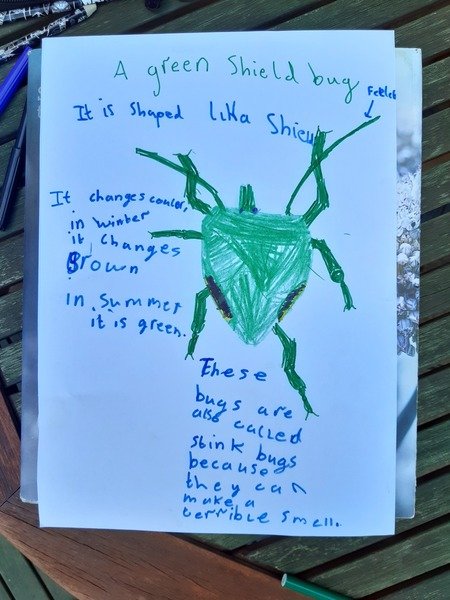 A green Shield bug
It is shaped like Shieu
It changes couler,
in winter
it changes
Brown
In summer
it is green.
These
bugs are
also called
stink bugs
because
they can
make a
terrible smell.